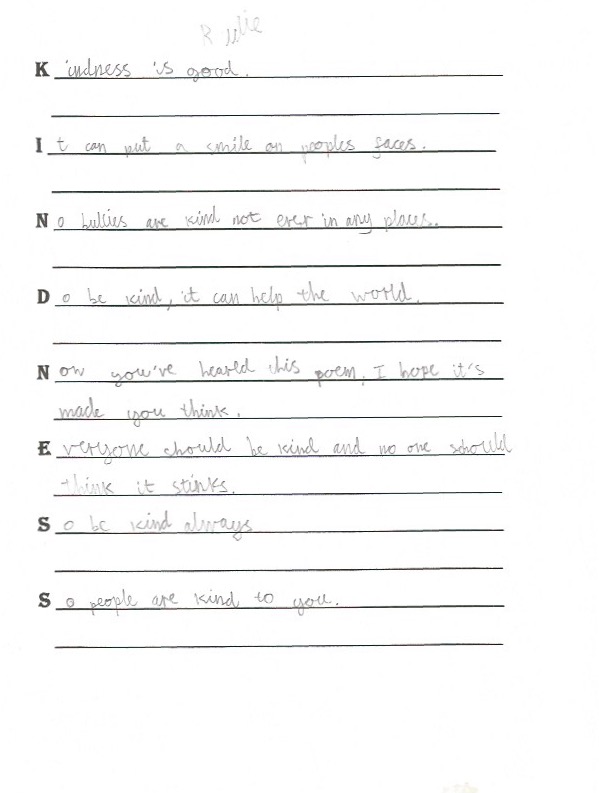 Kindness is good.
It can put a smile on peoples faces.
No bullies are kind not ever in any places.
Do be kind, it can help the world.
Now you've heared this poem, I hope it's
made you think.
Everyone should be kind and no one should
think it stinks.
So be kind always
So people are kind to you.